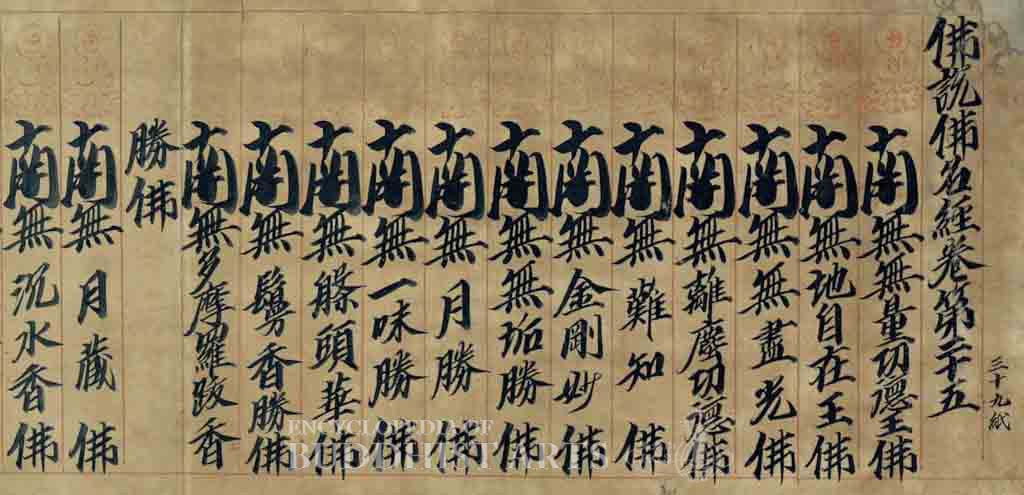 佛說佛名經卷第二十五
三十九紙
南無無量功德王佛
南無地自在王佛
南無無盡光佛
南無離塵功德佛
南無難知佛
南無金剛妙佛
南無無垢勝佛
南無月勝佛
南無一味勝佛
南無頭華佛
南無鬘香勝佛
南無多摩羅跋香
勝佛
南無月藏佛
南無沉水香佛
ENCYCLOPEDIA OF
BUDDHIST ARTS